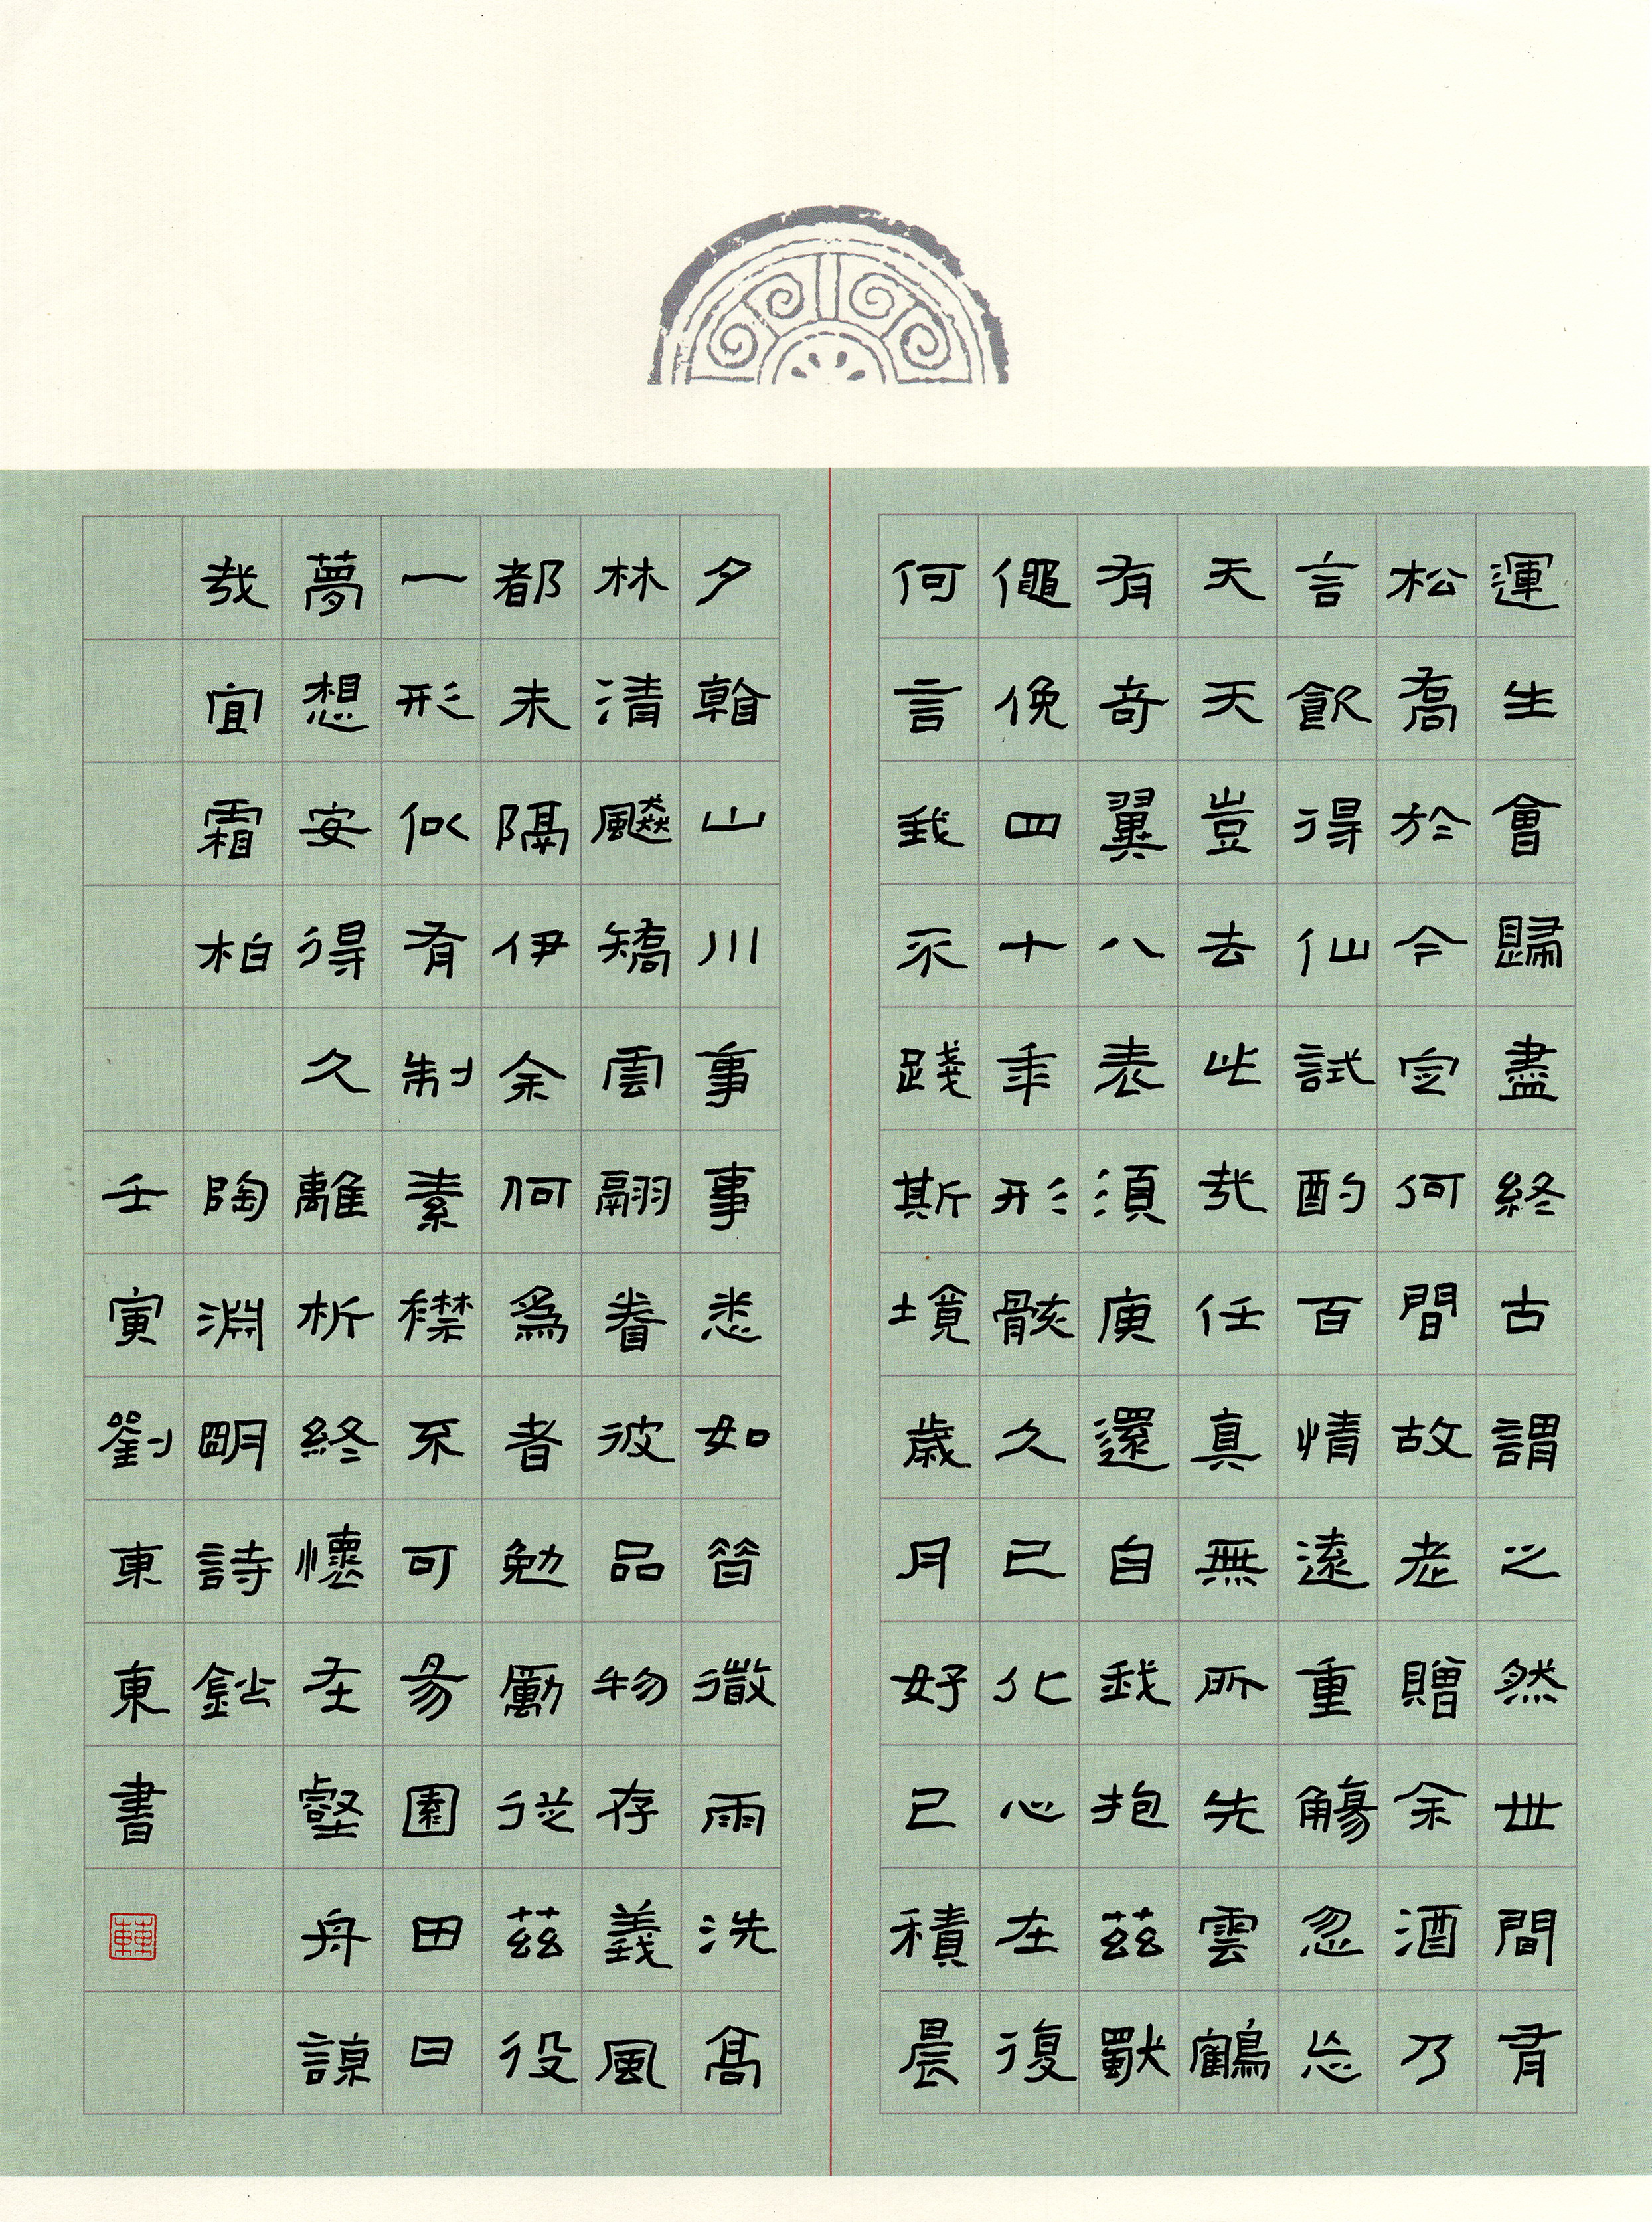 運生會歸盡終古謂之然世間有
松喬於今定何間故老贈余酒乃
言飲得仙試酌百情遠重觴忽忘
天天豈去此哉任真無所先雲鶴
有奇翼八表須臾還自我抱茲獨
僶俛四十年形骸久已化心在復
何言我不踐斯境歲月好已積晨
夕看山川事事悉如昔微雨洗高
林清飇矯雲翮眷彼品物存義風
都未隔伊余何為者勉勵從茲役
一形似有制素襟不可易園田日
夢想安得久離析終懷在壑舟諒
哉宜霜柏 陶淵明詩鈔
壬寅劉東東書
東東